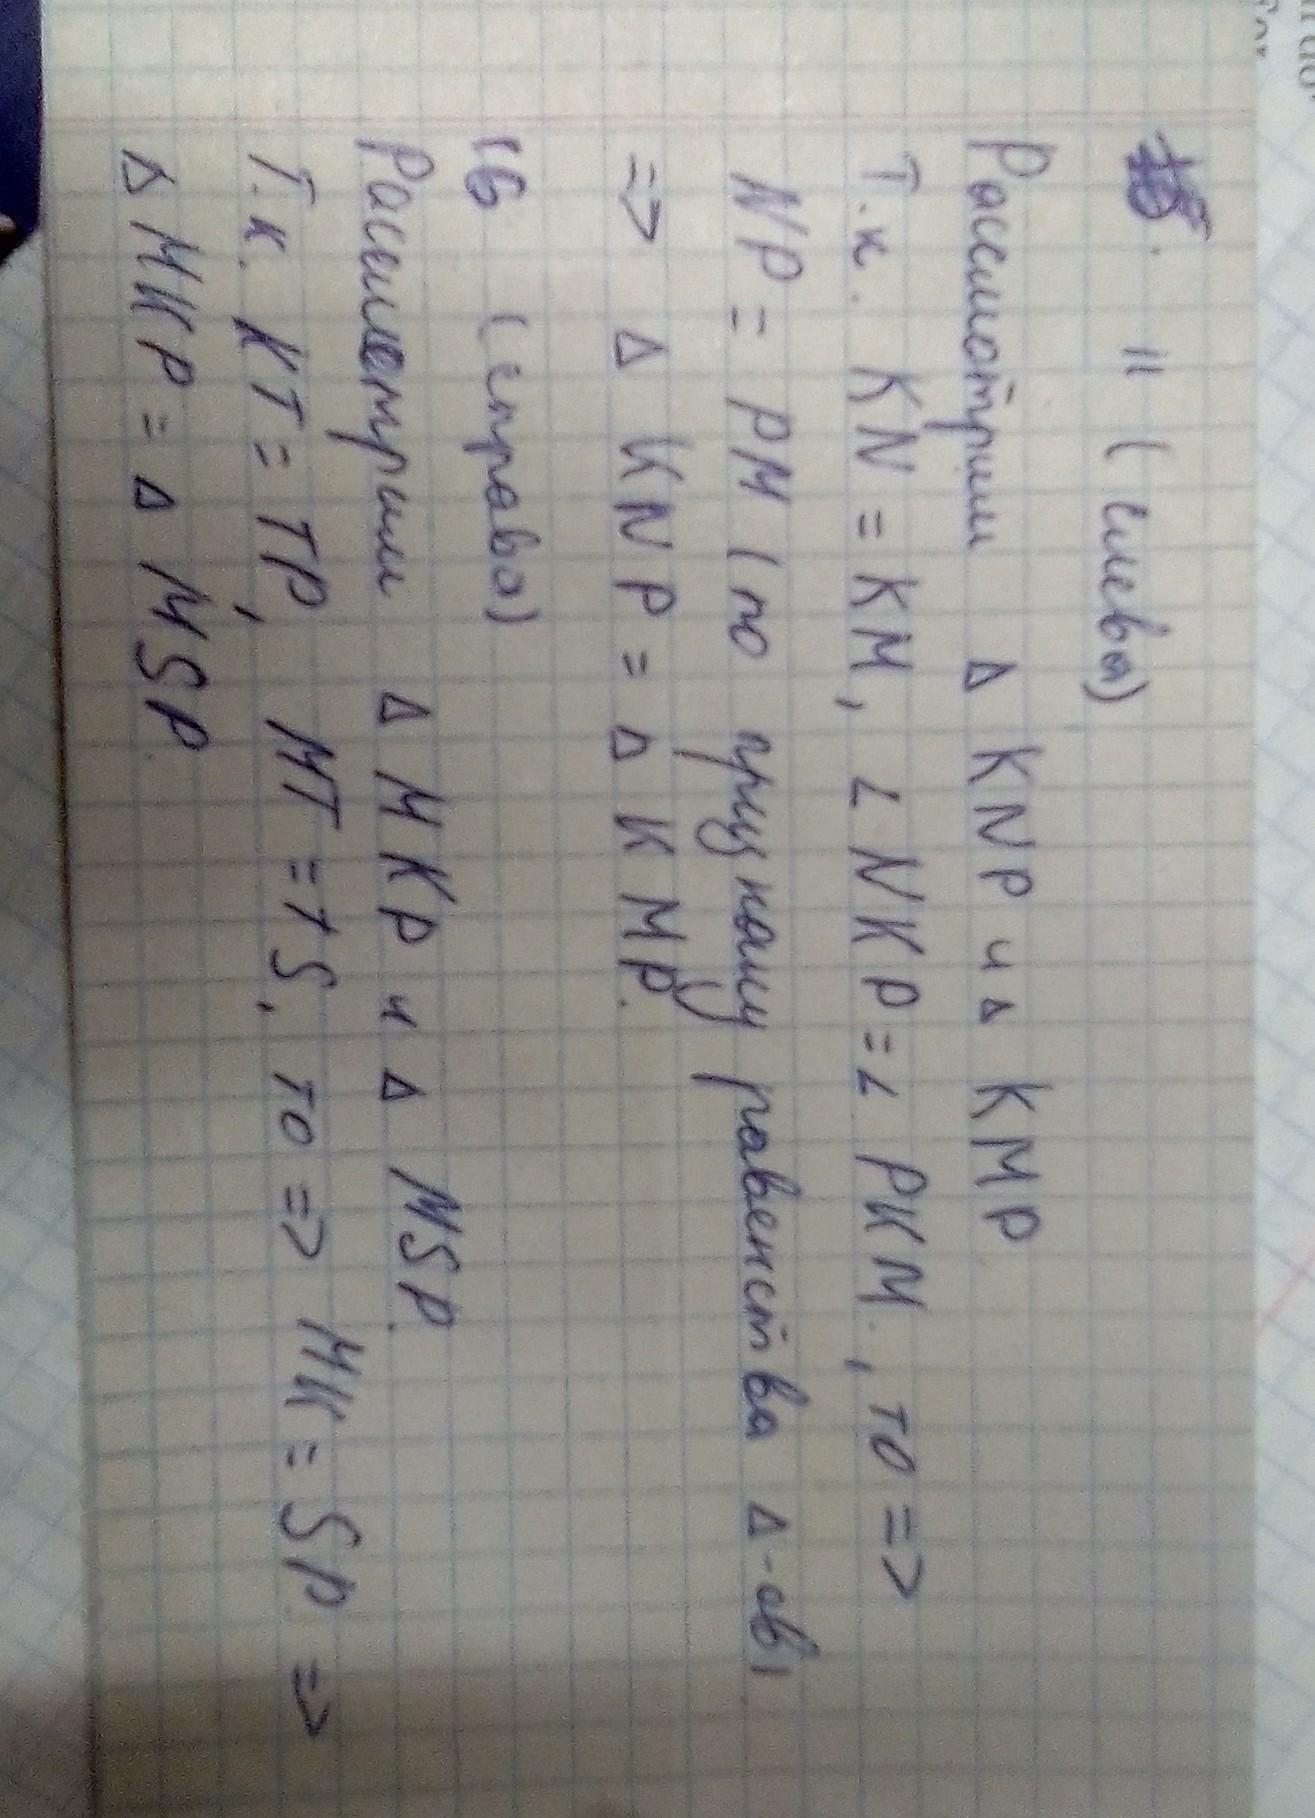 11 (слева)
Рассмотрим Δ KNP и Δ KMP
Т.к. KN = KM, ∠ NKP = ∠ PKM., то =>
NP = PM (по признаку равенства Δ-ов)
=> Δ KNP = Δ KMP.
16 (справа)
Рассмотрим Δ MKP и Δ MSP.
Т.к. KT = TP, MT = TS, то => MK = SP =>
Δ MKP = Δ MSP